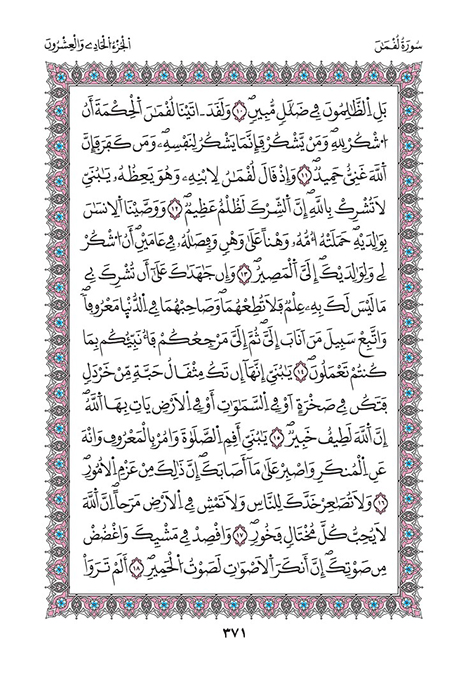 سُورَةُ لُقْمَٰنَ
اَلْجُزْءُ الْحَادِے وَالْعِشْرُونَ
بَلِ اِ۬لظَّٰلِمُونَ فِے ضَلَٰلٖ مُّبِينٖۖ ١٠ وَلَقَدَ اٰتَيْنَا لُقْمَٰنَ اَ۬لْحِكْمَةَ أَنُ
ا۟شْكُرْ لِلهِۖ وَمَنْ يَّشْكُرْ فَإِنَّمَا يَشْكُرُ لِنَفْسِهِۦۖ وَمَن كَفَرَ فَإِنَّ
اَ۬للَّهَ غَنِيٌّ حَمِيدٞۖ ١١ وَإِذْ قَالَ لُقْمَٰنُ لِابْنِهِۦ وَهُوَ يَعِظُهُۥ يَٰبُنَيِّ
لَا تُشْرِكْ بِاللَّهِۖ إِنَّ اَ۬لشِّرْكَ لَظُلْمٌ عَظِيمٞۖ ١٢ وَوَصَّيْنَا اَ۬لِانسَٰنَ
بِوَٰلِدَيْهِۖ حَمَلَتْهُ أُمُّهُۥ وَهْناً عَلَىٰ وَهْنٖ وَفِصَٰلُهُۥ فِے عَامَيْنِۖ أَنُ اُ۟شْكُرْ
لِے وَلِوَٰلِدَيْكَۖ إِلَيَّ اَ۬لْمَصِيرُۖ ١٣ وَإِن جَٰهَدَٰكَ عَلَىٰ أَن تُشْرِكَ بِے
مَا لَيْسَ لَكَ بِهِۦ عِلْمٞ فَلَا تُطِعْهُمَاۖ وَصَاحِبْهُمَا فِے اِ۬لدُّنْيَا مَعْرُوفاٗۖ
وَاتَّبِعْ سَبِيلَ مَنَ اَنَابَ إِلَيَّۖ ثُمَّ إِلَيَّ مَرْجِعُكُمْ فَأُنَبِّئُكُم بِمَا
كُنتُمْ تَعْمَلُونَۖ ١٤ يَٰبُنَيِّ إِنَّهَا إِن تَكُ مِثْقَالُ حَبَّةٖ مِّنْ خَرْدَلٖ
فَتَكُن فِے صَخْرَةٍ اَوْ فِے اِ۬لسَّمَٰوَٰتِ أَوْ فِے اِ۬لَارْضِ يَاتِ بِهَا اَ۬للَّهُۖ
إِنَّ اَ۬للَّهَ لَطِيفٌ خَبِيرٞۖ ١٥ يَٰبُنَيِّ أَقِمِ اِ۬لصَّلَوٰةَ وَامُرْ بِالْمَعْرُوفِ وَانْهَ
عَنِ اِ۬لْمُنكَرِ وَاصْبِرْ عَلَىٰ مَا أَصَابَكَۖ إِنَّ ذَٰلِكَ مِنْ عَزْمِ اِ۬لُامُورِۖ
١٦ وَلَا تُصَٰعِرْ خَدَّكَ لِلنَّاسِ وَلَا تَمْشِ فِے اِ۬لَارْضِ مَرَحاًۖ اِنَّ اَ۬للَّهَ
لَا يُحِبُّ كُلَّ مُخْتَالٖ فَخُورٖۖ ١٧ وَاقْصِدْ فِے مَشْيِكَ وَاغْضُضْ
مِن صَوْتِكَۖ إِنَّ أَنكَرَ اَ۬لَاصْوَٰتِ لَصَوْتُ اُ۬لْحَمِيرِۖ ١٨ أَلَمْ تَرَوَاْ
٣٧١